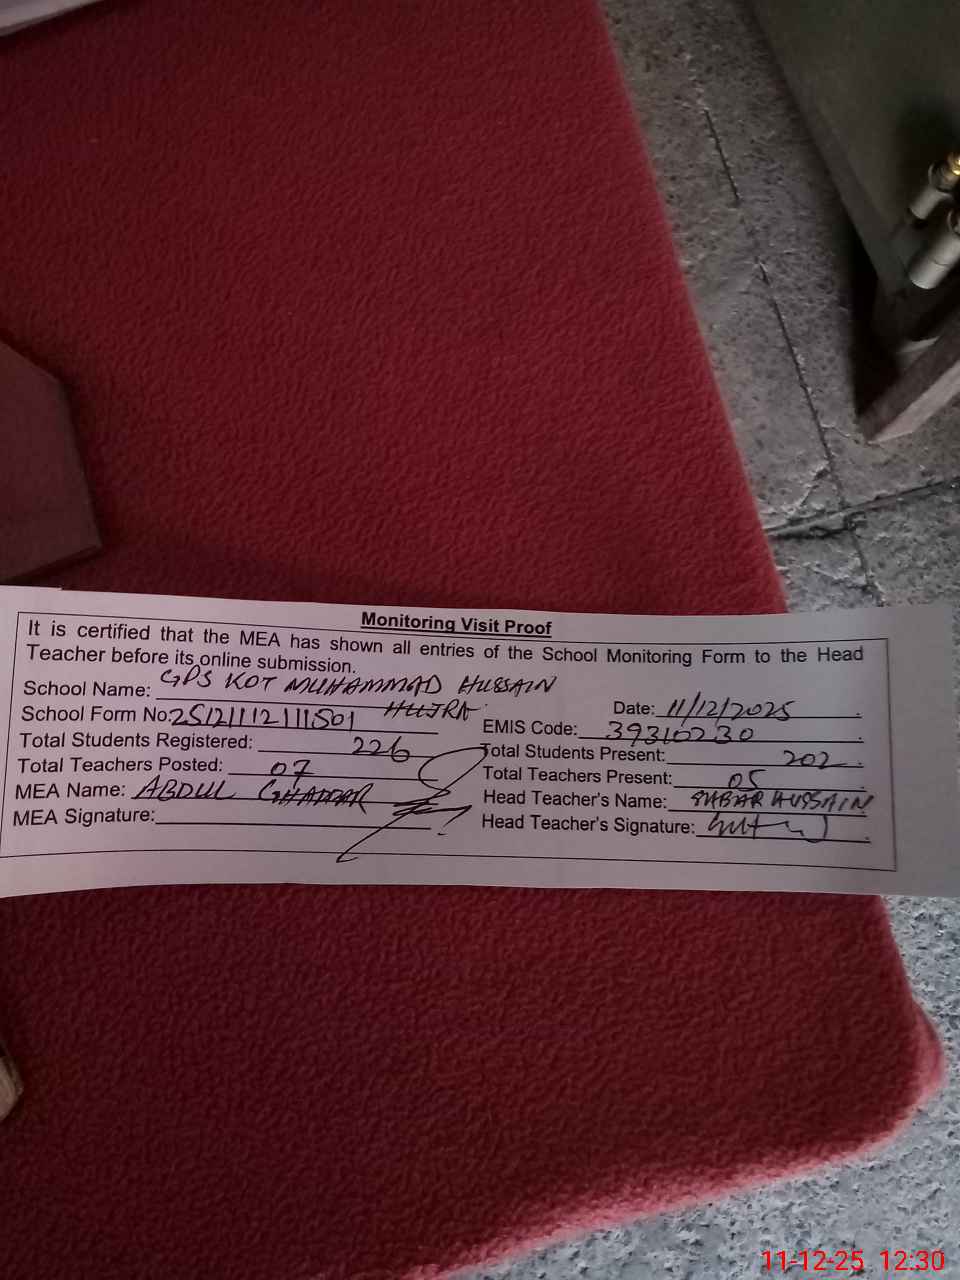 Monitoring Visit Proof
It is certified that the MEA has shown all entries of the School Monitoring Form to the Head
Teacher before its online submission.
School Name: GPS KOT MUHAMMAD HUSSAIN
HUJRA
Date: 11/12/2025
School Form No: 251211112111501
EMIS Code: 39310230
Total Students Registered: 226
Total Students Present: 202
Total Teachers Posted: 07
Total Teachers Present: 05
MEA Name: ABDUL GHAFFAR
Head Teacher's Name: HUSSAIN
MEA Signature:
Head Teacher's Signature:
11-12-25 12:30